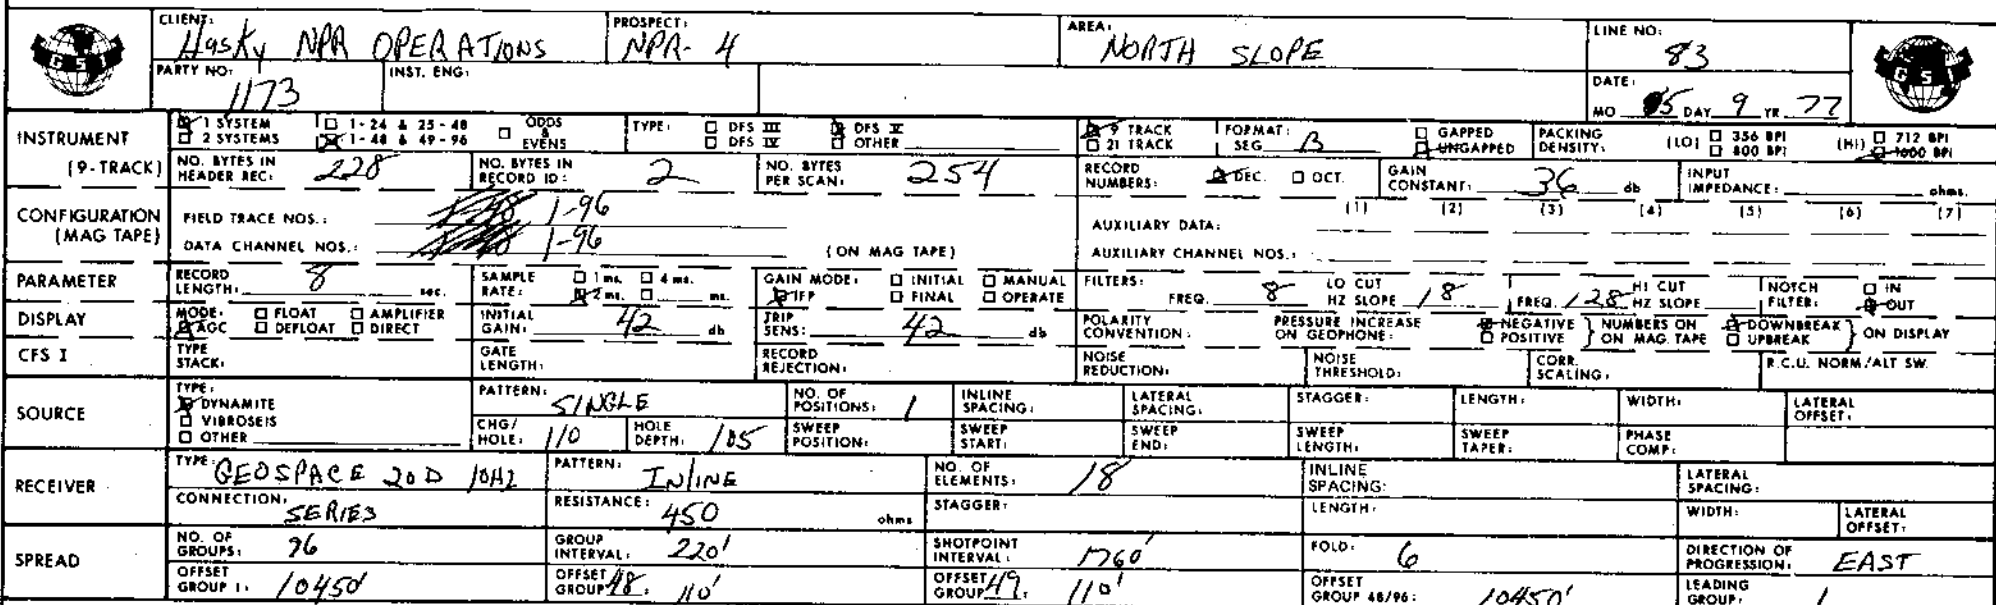 CLIENT: Husky NPR OPERATIONS PROSPECT: NPR-4 AREA: NORTH SLOPE LINE NO: 83
GSI
PARTY NO: 1173 INST. ENG: DATE: MO 5 DAY 9 YR 77
GSI
INSTRUMENT (9-TRACK)
1 SYSTEM 1-24 & 25-48 ODDS & EVENS TYPE: DFS III DFS V 9 TRACK FORMAT: SEG B GAPPED PACKING DENSITY: (LO) 356 BPI (HI) 712 BPI
2 SYSTEMS 1-48 & 49-96 DFS IV OTHER 21 TRACK UNGAPPED 800 BPI 1600 BPI
NO. BYTES IN HEADER REC: 228 NO. BYTES IN RECORD ID: 2 NO. BYTES PER SCAN: 254 RECORD NUMBERS: DEC. OCT. GAIN CONSTANT: 36 db INPUT IMPEDANCE: ohms.
CONFIGURATION (MAG TAPE)
FIELD TRACE NOS.: 1-96 AUXILIARY DATA: (1) (2) (3) (4) (5) (6) (7)
DATA CHANNEL NOS.: 1-96 (ON MAG TAPE) AUXILIARY CHANNEL NOS.:
PARAMETER RECORD LENGTH: 8 sec. SAMPLE RATE: 1 ms. 4 ms. 2 ms. ms. GAIN MODE: INITIAL MANUAL IFP FINAL OPERATE FILTERS: FREQ. 8 LO CUT HZ SLOPE 18 FREQ. 128 HI CUT HZ SLOPE NOTCH FILTER: IN OUT
DISPLAY MODE: FLOAT AMPLIFIER AGC DEFLOAT DIRECT INITIAL GAIN: 42 db TRIP SENS: 42 db POLARITY CONVENTION: PRESSURE INCREASE ON GEOPHONE: NEGATIVE POSITIVE NUMBERS ON ON MAG. TAPE DOWNBREAK UPBREAK ON DISPLAY
CFS I TYPE STACK: GATE LENGTH: RECORD REJECTION: NOISE REDUCTION: NOISE THRESHOLD: CORR. SCALING: R.C.U. NORM./ALT SW.
SOURCE TYPE: DYNAMITE VIBROSEIS OTHER PATTERN: SINGLE NO. OF POSITIONS: 1 INLINE SPACING: LATERAL SPACING: STAGGER: LENGTH: WIDTH: LATERAL OFFSET:
CHG/HOLE: 110 HOLE DEPTH: 105 SWEEP POSITION: SWEEP START: SWEEP END: SWEEP LENGTH: SWEEP TAPER: PHASE COMP:
RECEIVER TYPE: GEOSPACE 20D 10HZ PATTERN: INLINE NO. OF ELEMENTS: 18 INLINE SPACING: LATERAL SPACING:
CONNECTION: SERIES RESISTANCE: 450 ohms STAGGER: LENGTH: WIDTH: LATERAL OFFSET:
SPREAD NO. OF GROUPS: 96 GROUP INTERVAL: 220' SHOTPOINT INTERVAL: 1760' FOLD: 6 DIRECTION OF PROGRESSION: EAST
OFFSET GROUP 1: 10450' OFFSET GROUP 48: 110' OFFSET GROUP 49: 110' OFFSET GROUP 48/96: 10450' LEADING GROUP: 1